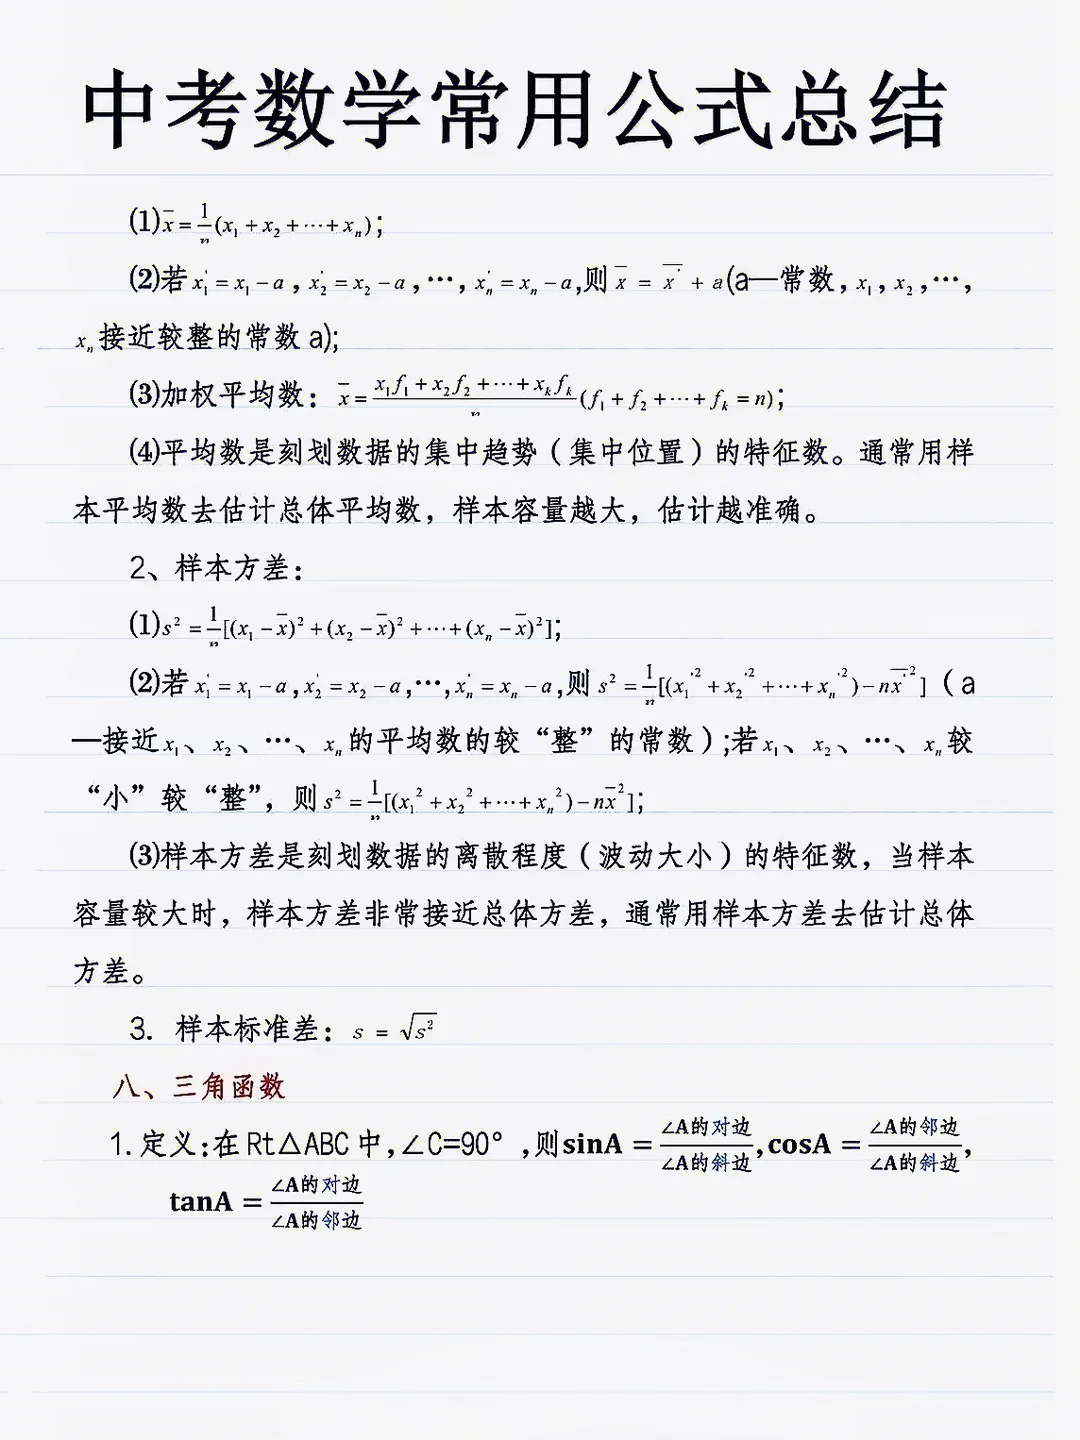 中考数学常用公式总结
⑴x̄=1/n(x₁+x₂+⋯+xₙ);
⑵若x₁'=x₁-a,x₂'=x₂-a,⋯,xₙ'=xₙ-a,则x̄=x̄'+a(a—常数,x₁,x₂,⋯,
xₙ接近较整的常数a);
⑶加权平均数:x̄=(x₁f₁+x₂f₂+⋯+xₖfₖ)/n(f₁+f₂+⋯+fₖ=n);
⑷平均数是刻划数据的集中趋势(集中位置)的特征数。通常用样
本平均数去估计总体平均数,样本容量越大,估计越准确。
2、样本方差:
⑴s²=1/n[(x₁-x̄)²+(x₂-x̄)²+⋯+(xₙ-x̄)²];
⑵若x₁'=x₁-a,x₂'=x₂-a,⋯,xₙ'=xₙ-a,则s²=1/n[(x₁'²+x₂'²+⋯+xₙ'²)-nx̄'²](a
—接近x₁、x₂、⋯、xₙ的平均数的较“整”的常数);若x₁、x₂、⋯、xₙ较
“小”较“整”,则s²=1/n[(x₁²+x₂²+⋯+xₙ²)-nx̄²];
⑶样本方差是刻划数据的离散程度(波动大小)的特征数,当样本
容量较大时,样本方差非常接近总体方差,通常用样本方差去估计总体
方差。
3. 样本标准差:s=√s²
八、三角函数
1.定义:在Rt△ABC中,∠C=90°,则sinA=∠A的对边/∠A的斜边,cosA=∠A的邻边/∠A的斜边,
tanA=∠A的对边/∠A的邻边